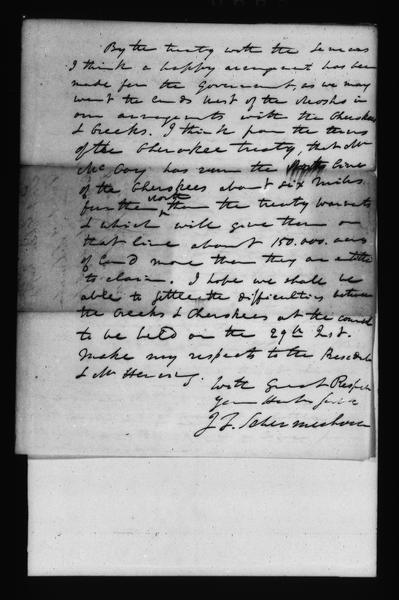 By the treaty with the Senecas
I think a happy arrangement has been
made for the Government, as we may
want the lands West of the Neosho in
our arrangements with the Cherokees
& Creeks. I think from the terms
of the Cherokee treaty, that Mr
Mc Coy has run the North line
of the Cherokees about six miles
further north than the treaty warrants
& which will give them on
that line about 150.000. acres
of land more than they are entitled
to claim. I hope we shall be
able to settle the difficulties between
the Creeks & Cherokees at the council
to be held on the 29th Inst.
Make my respects to the President
& Mr Herring.
With Great Respect
Your Humb Servt
J. F. Schermerhorn